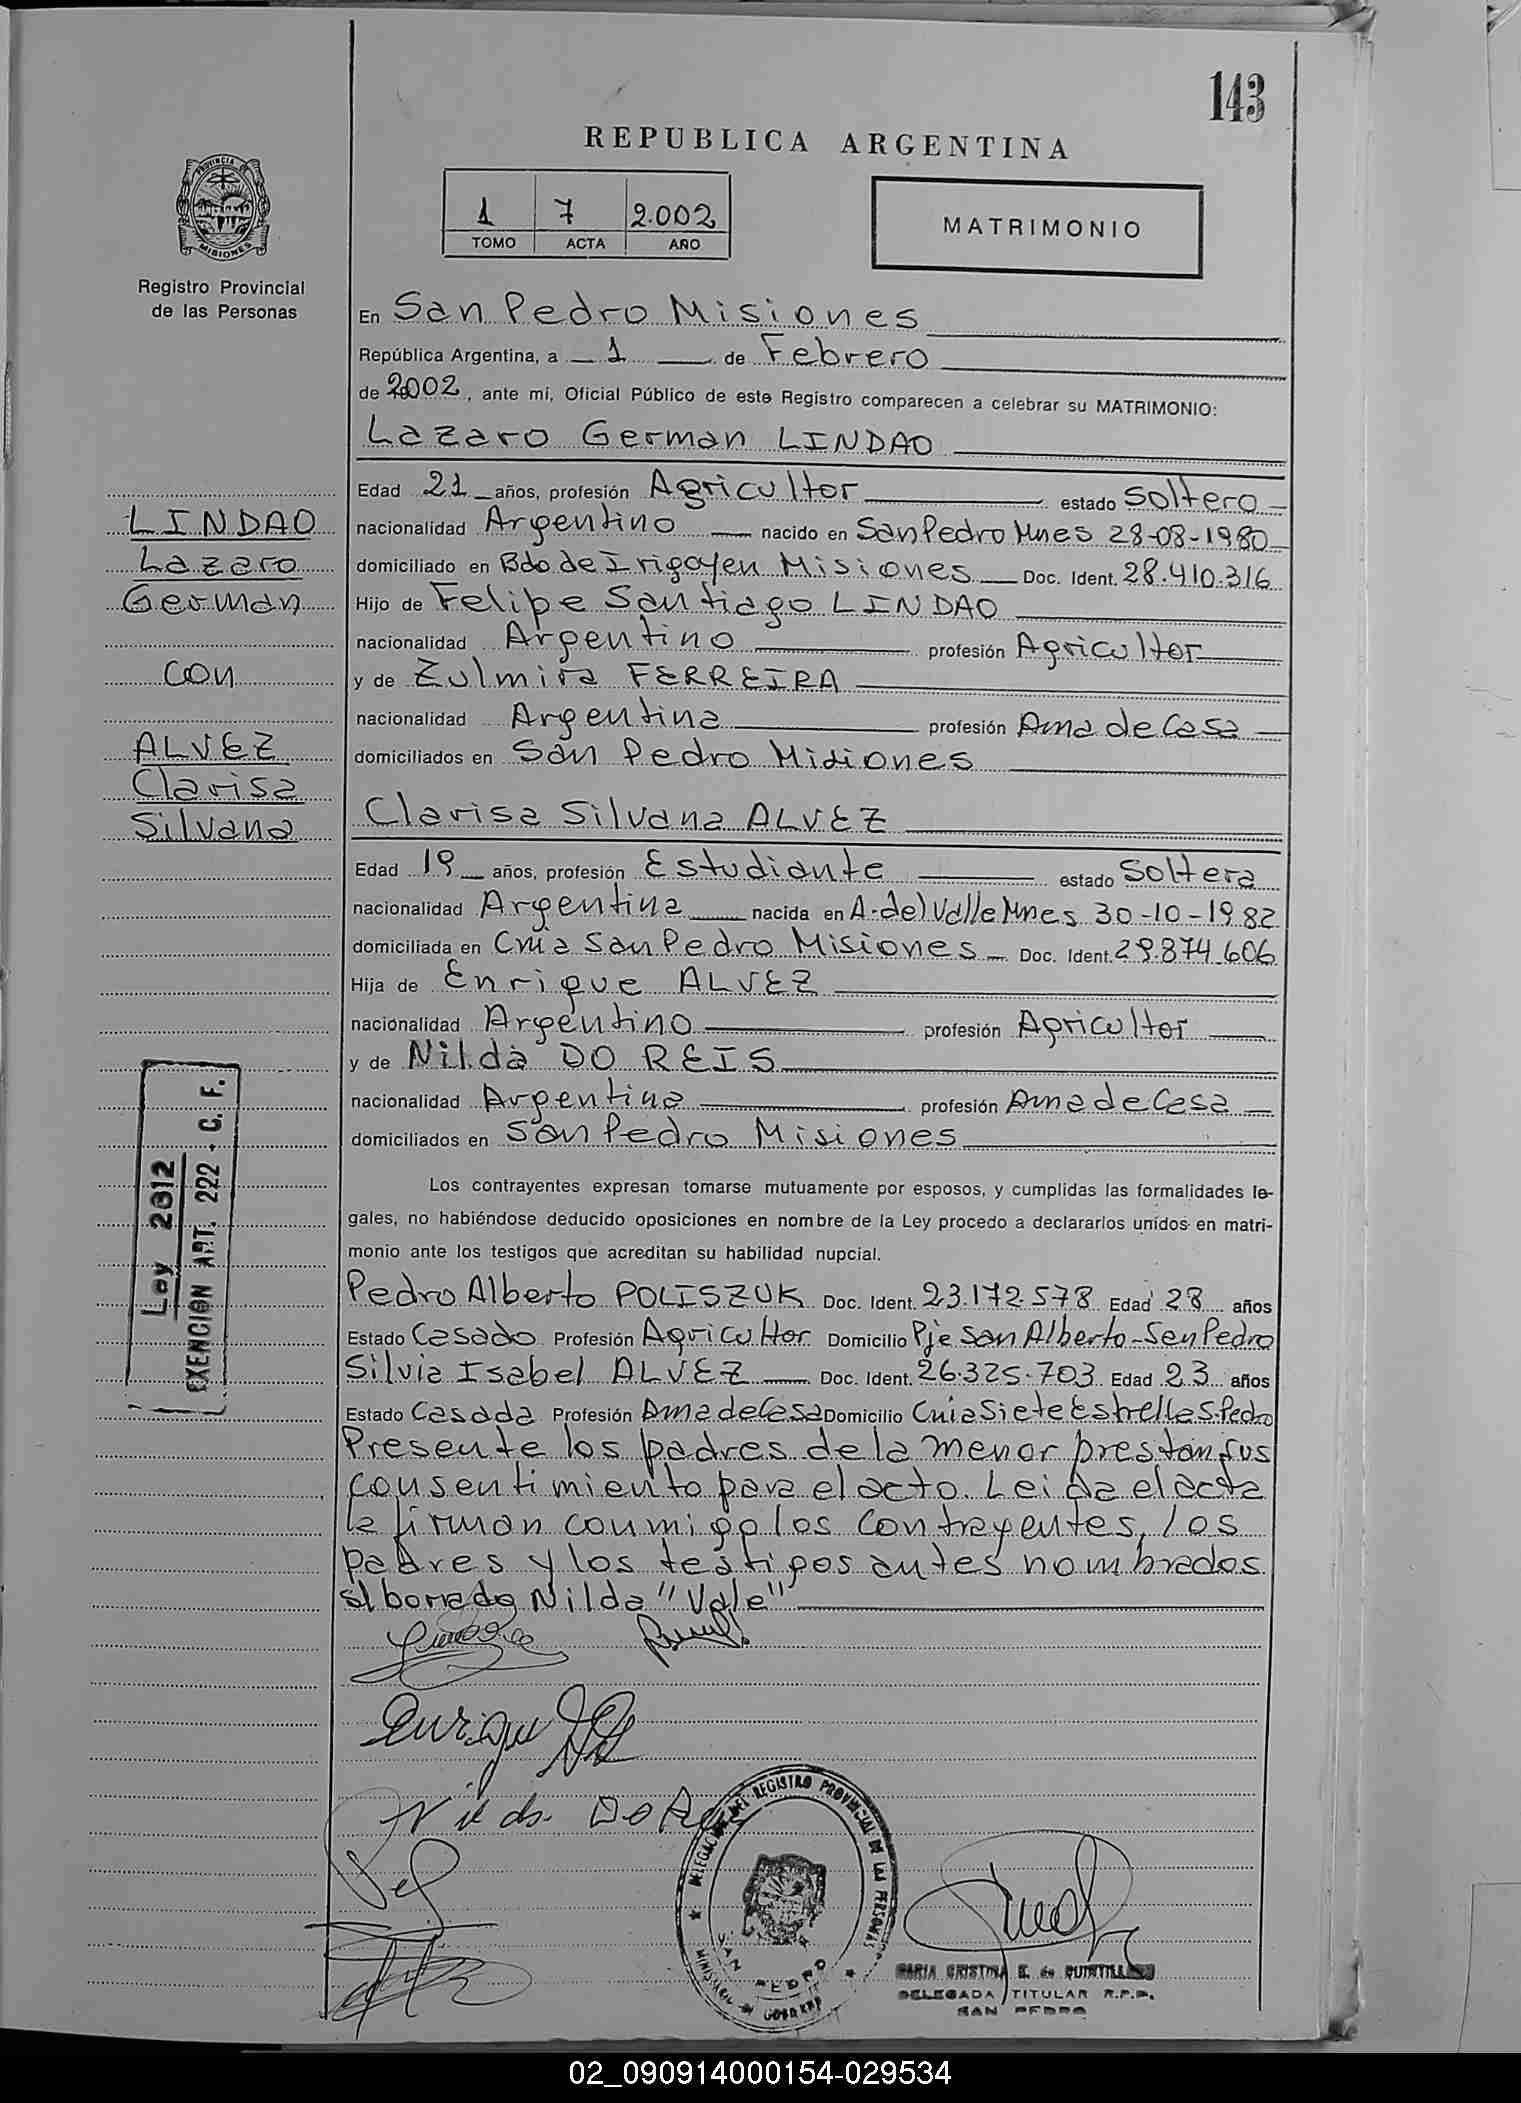 143
REPUBLICA ARGENTINA
PROVINCIA DE
MISIONES
Registro Provincial
de las Personas
1 7 2.002
TOMO ACTA AÑO
MATRIMONIO
En San Pedro Misiones
República Argentina, a 1 de Febrero
de 2002, ante mí, Oficial Público de este Registro comparecen a celebrar su MATRIMONIO:
Lazaro German LINDAO
Edad 21 años, profesión Agricultor estado Soltero
LINDAO
Lazaro
German
con
ALVEZ
Clarisa
Silvana
nacionalidad Argentino nacido en San Pedro Mnes 28-08-1980
domiciliado en Bdo de Irigoyen Misiones Doc. Ident. 28.410.316
Hijo de Felipe Santiago LINDAO
nacionalidad Argentino profesión Agricultor
y de Zulmira FERREIRA
nacionalidad Argentina profesión Ama de Casa
domiciliados en San Pedro Misiones
Clarisa Silvana ALVEZ
Edad 19 años, profesión Estudiante estado Soltera
nacionalidad Argentina nacida en A. del Valle Mnes 30-10-1982
domiciliada en Cnia San Pedro Misiones Doc. Ident. 29.874.606
Hija de Enrique ALVEZ
nacionalidad Argentino profesión Agricultor
y de Nilda DO REIS
nacionalidad Argentina profesión Ama de Casa
domiciliados en San Pedro Misiones
Ley 2812
EXENCION ART. 222 - C. F.
Los contrayentes expresan tomarse mutuamente por esposos, y cumplidas las formalidades le-
gales, no habiéndose deducido oposiciones en nombre de la Ley procedo a declararlos unidos en matri-
monio ante los testigos que acreditan su habilidad nupcial.
Pedro Alberto POLISZUK Doc. Ident. 23.172.578 Edad 28 años
Estado Casado Profesión Agricultor Domicilio Pje San Alberto-San Pedro
Silvia Isabel ALVEZ Doc. Ident. 26.325.703 Edad 23 años
Estado Casada Profesión Ama de Casa Domicilio Cnia Siete Estrellas S. Pedro
Presente los padres de la menor prestan sus
consentimiento para el acto. Leida el acta
la firman conmigo los contrayentes, los
padres y los testigos antes nombrados
S/borrado Nilda "Vale"
Enrique
Nilda Do
DELEGACION DEL REGISTRO PROVINCIAL DE LAS PERSONAS
SAN PEDRO
MINISTERIO DE GOBIERNO
MARIA CRISTINA E. de
DELEGADA TITULAR R.P.P.
SAN PEDRO
02_090914000154-029534